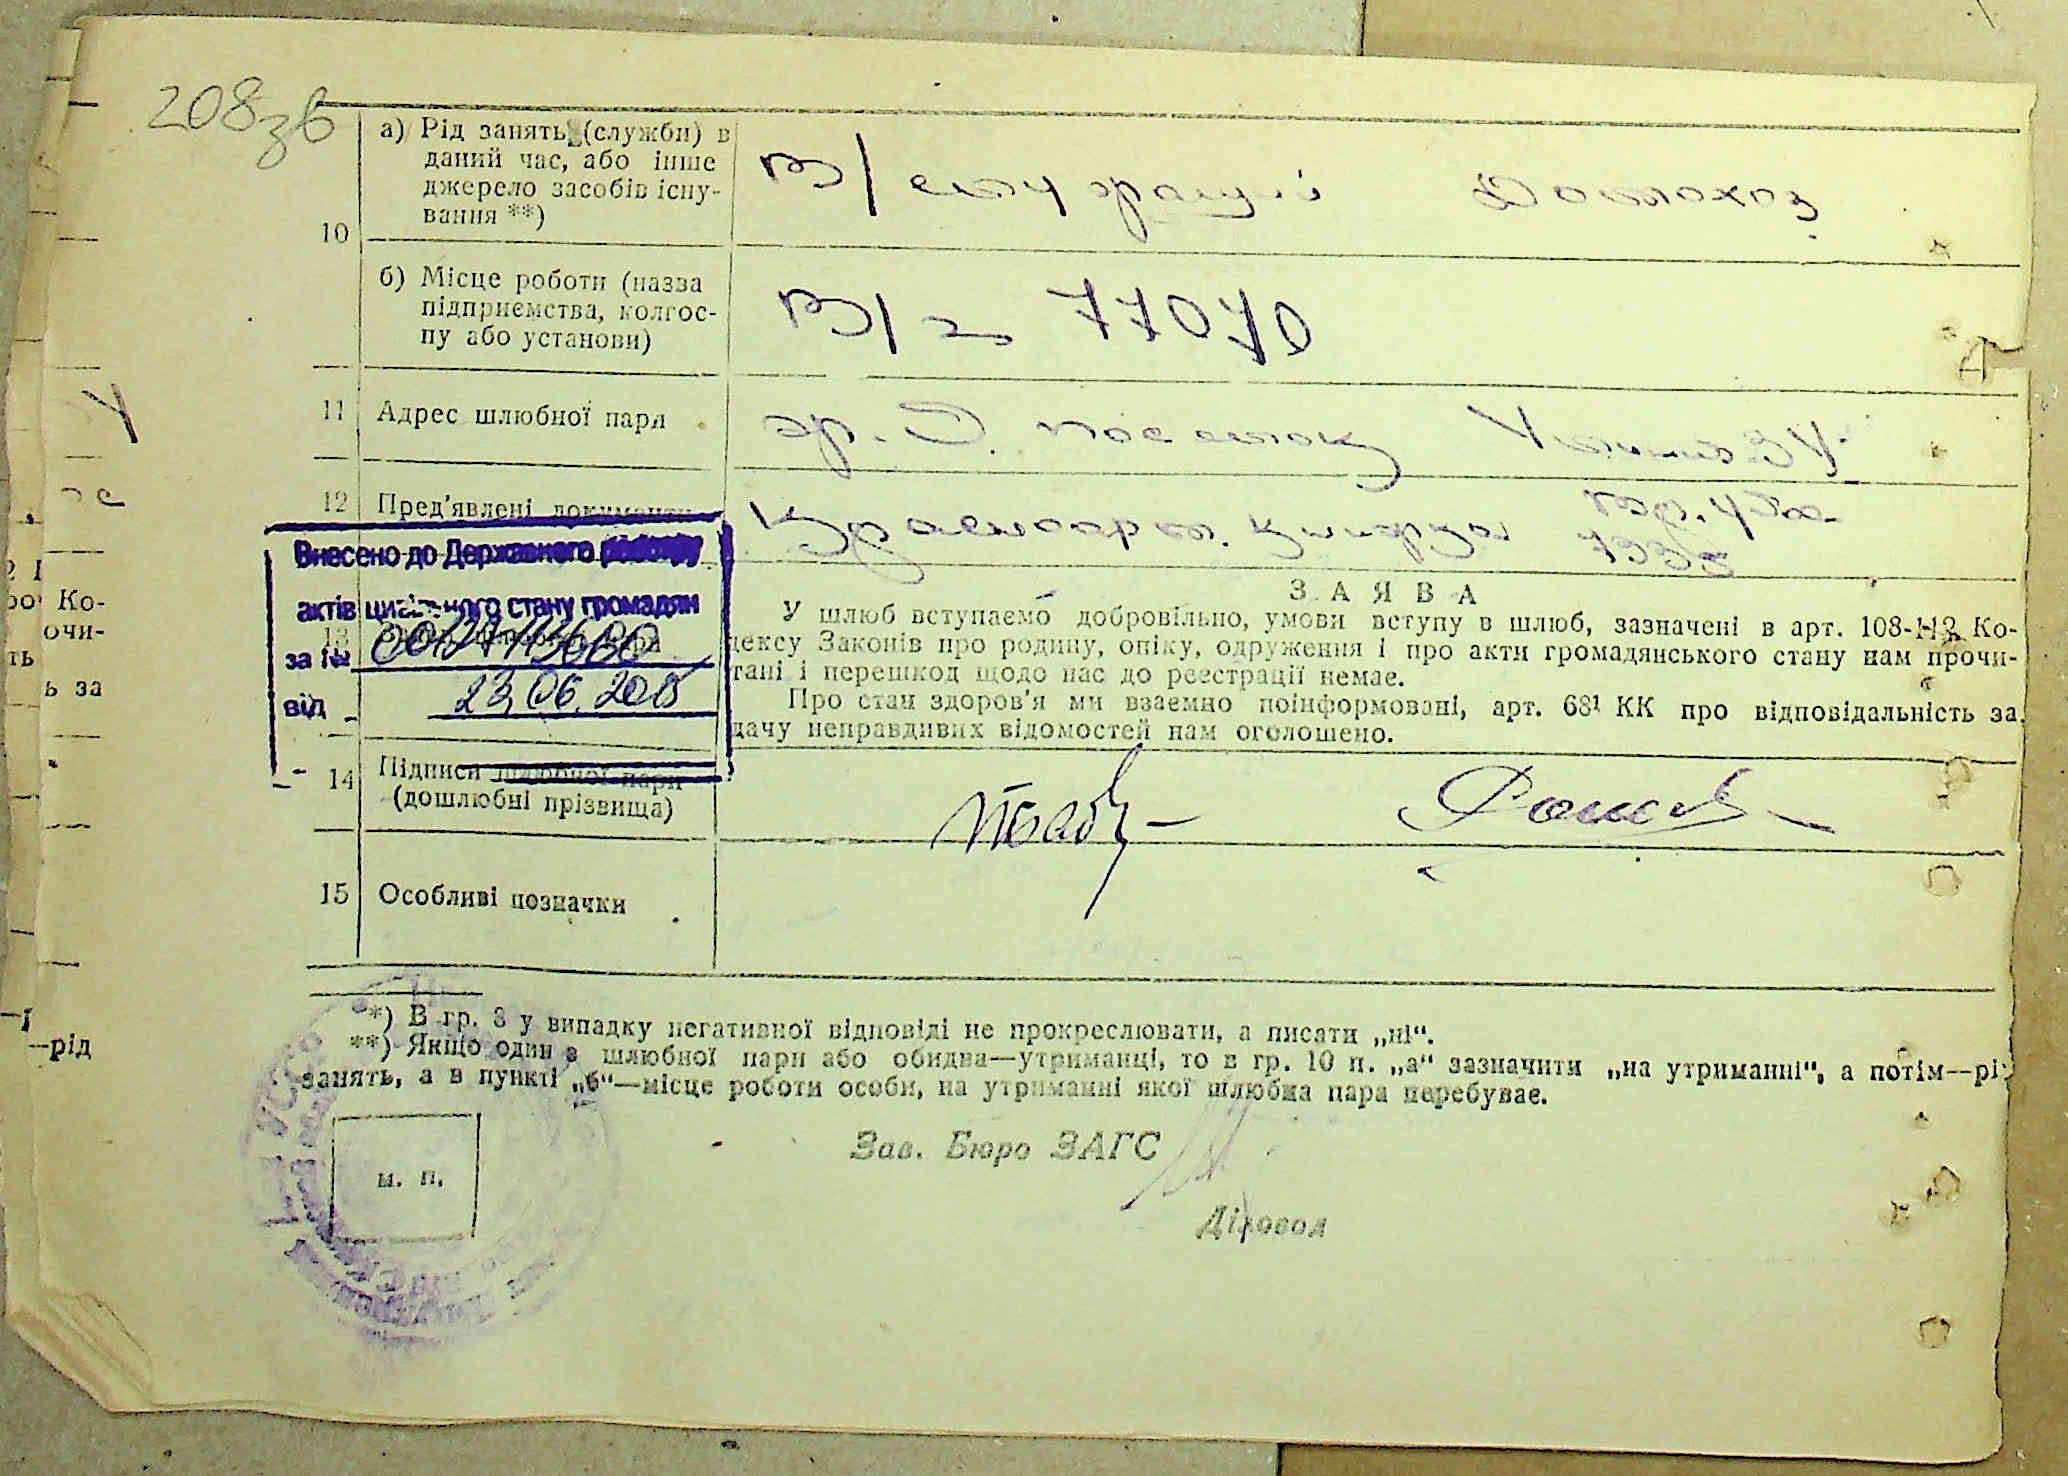 208зв
10
а) Рід занять (служби) в
даний час, або інше
джерело засобів існу-
вання **)
в/служащий Домохоз
б) Місце роботи (назва
підприємства, колгос-
пу або установи)
В/ч 77070
11 Адрес шлюбної пари
гр. поселок
12 Пред'явлені документи
Красноарм. книжка
Внесено до Державного реєстру
актів цивільного стану громадян
за №
від 23.06.2015
13
З А Я В А
У шлюб вступаємо добровільно, умови вступу в шлюб, зазначені в арт. 108-112 Ко-
дексу Законів про родину, опіку, одруження і про акти громадянського стану нам прочи-
тані і перешкод щодо нас до реєстрації немає.
Про стан здоров'я ми взаємно поінформовані, арт. 68¹ КК про відповідальність за
дачу неправдивих відомостей нам оголошено.
14 Підписи шлюбної пари
(дошлюбні прізвища)
15 Особливі позначки
*) В гр. 8 у випадку негативної відповіді не прокреслювати, а писати „ні“.
**) Якщо один з шлюбної пари або обидва—утриманці, то в гр. 10 п. „а“ зазначити „на утриманні“, а потім—рід
занять, а в пункті „б“—місце роботи особи, на утриманні якої шлюбна пара перебуває.
м. п.
Зав. Бюро ЗАГС
Діловод
Ко-
очи-
ть
ь за
—рід